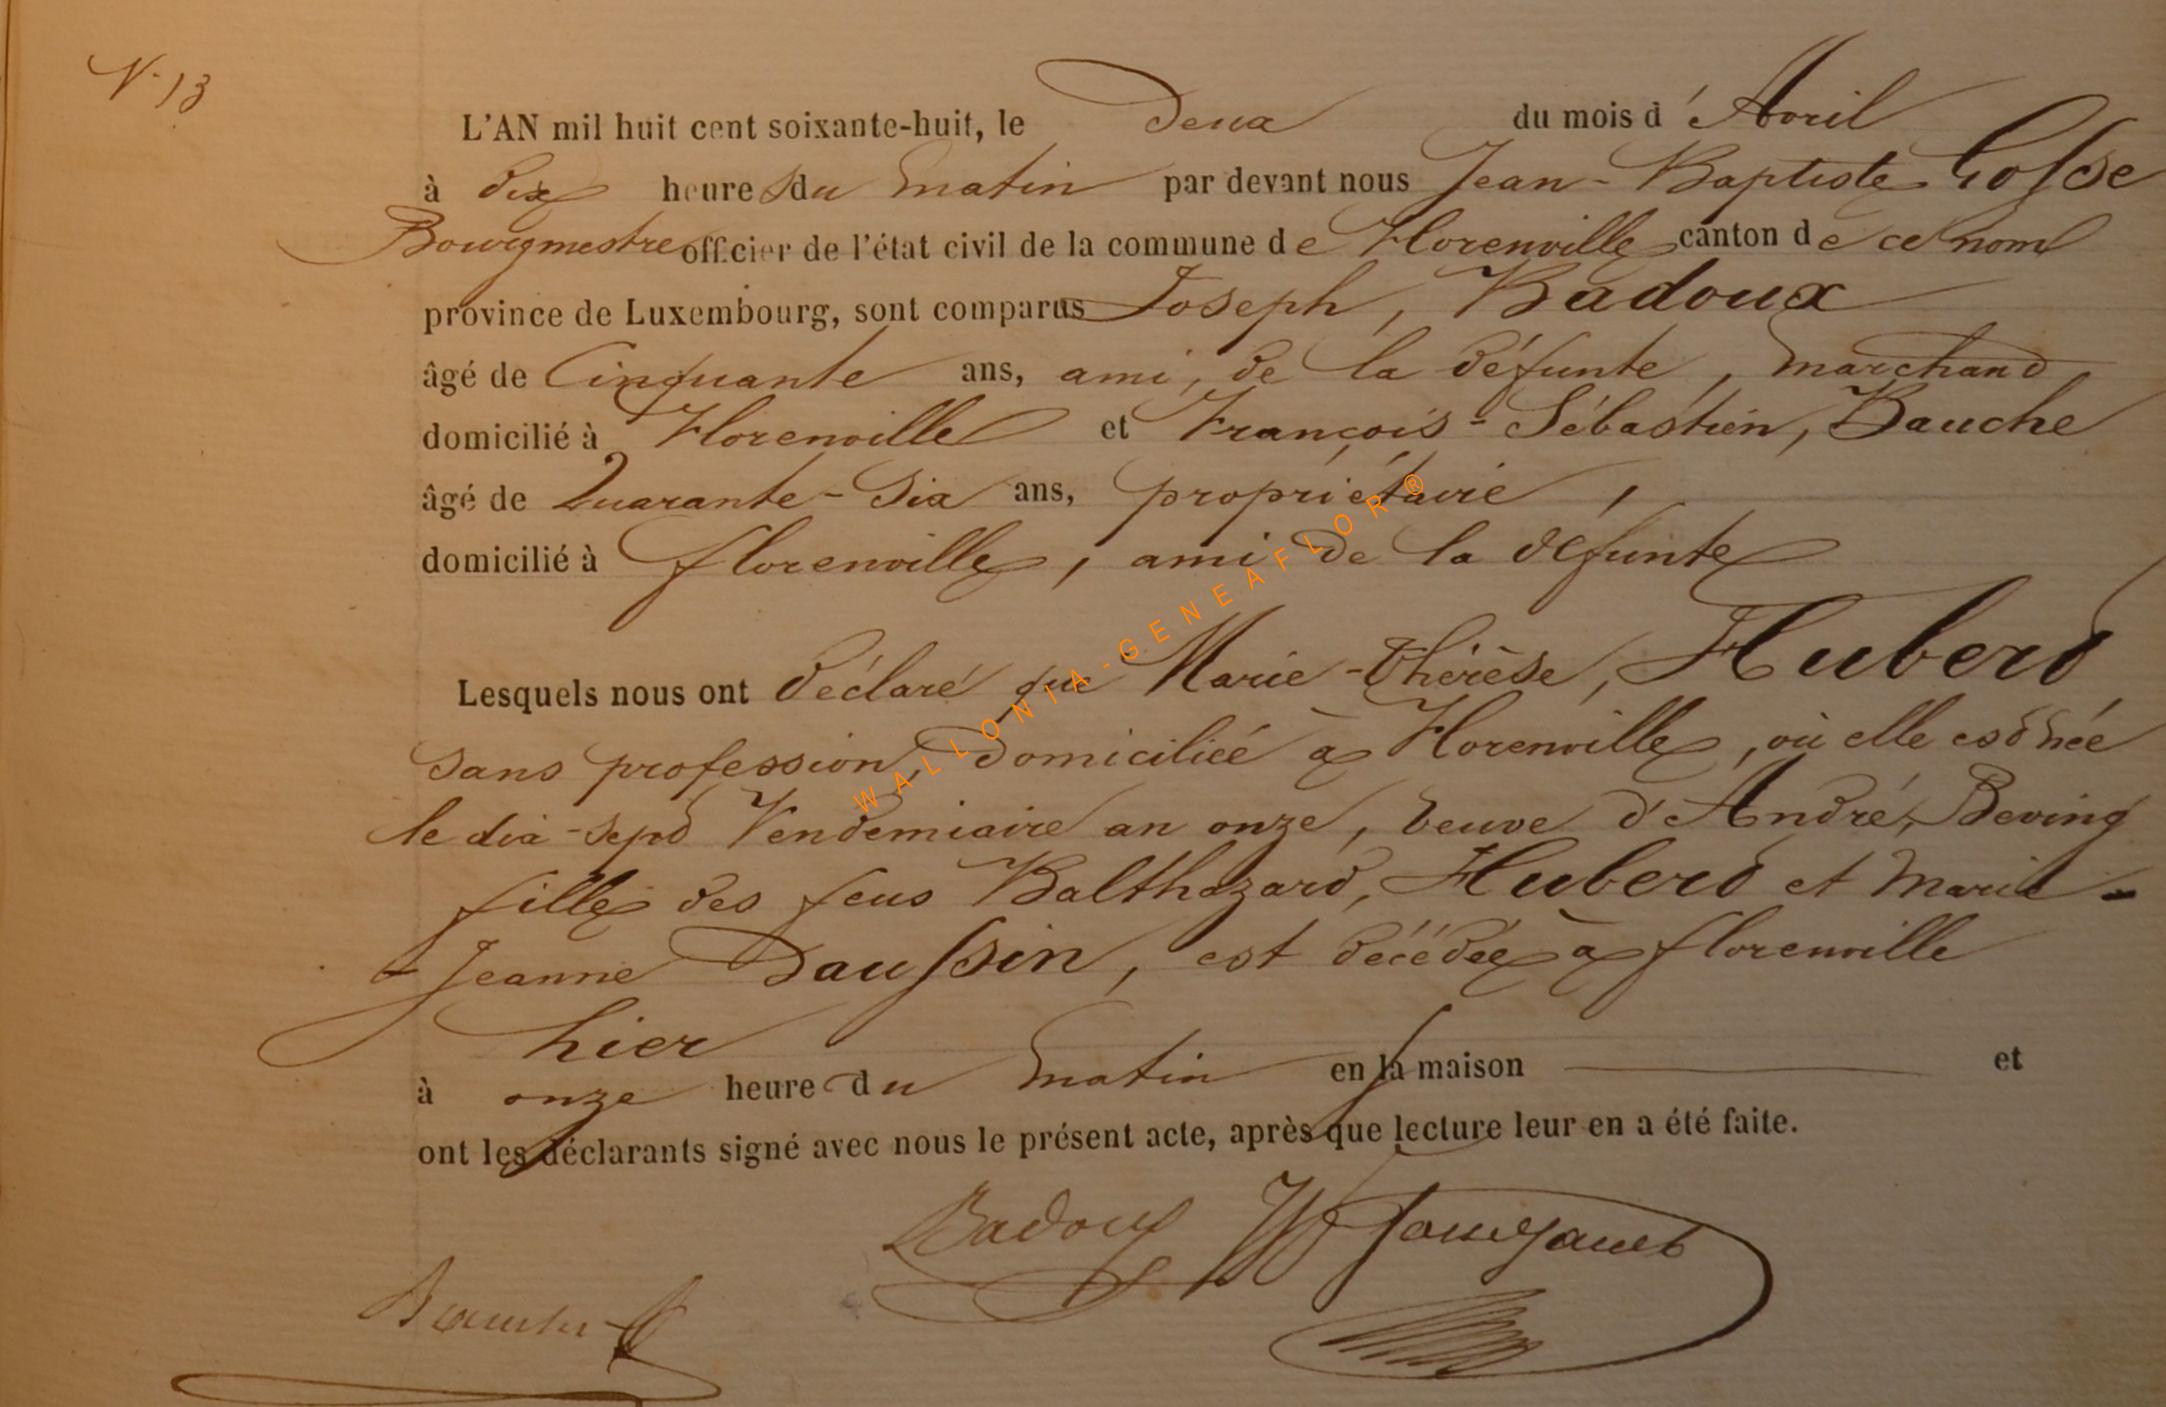 N. 13
L'AN mil huit cent soixante-huit, le Deux du mois d'Avril
à dix heures du matin par devant nous Jean-Baptiste Gosse
Bourgmestre officier de l'état civil de la commune de Florenville canton de ce nom
province de Luxembourg, sont comparus Joseph, Badoux
âgé de Cinquante ans, ami de la défunte, marchand
domicilié à Florenville et François-Sébastien, Bauche
âgé de Quarante-Six ans, propriétaire,
domicilié à florenville, ami de la défunte
Lesquels nous ont déclaré que Marie-thérèse, Hubert
sans profession, domiciliée à Florenville, où elle est née
le dix-sept Vendemiaire an onze, veuve d'André, Beving
fille des feus Balthazard, Hubert et Marie-
-Jeanne Daussin, est décédée à florenville
hier
à onze heure du matin en sa maison et
ont les déclarants signé avec nous le présent acte, après que lecture leur en a été faite.
Badoux
Bauche
WALLONIA-GENEAFLOR ®